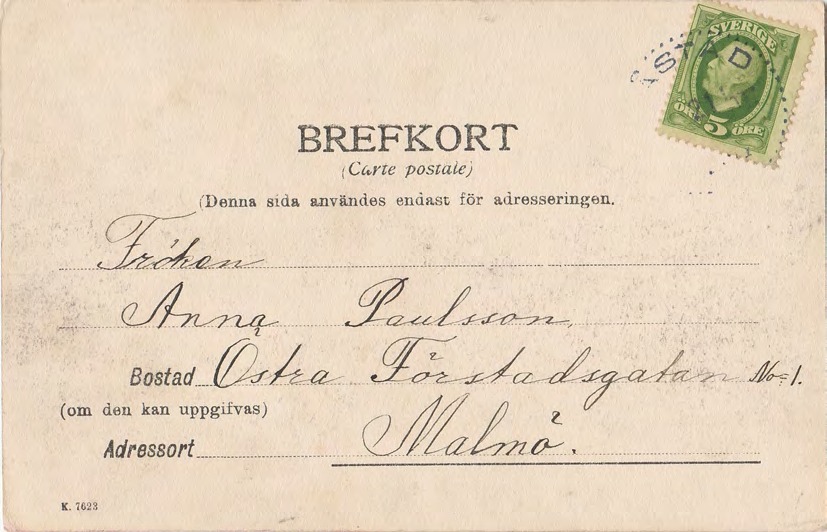 SVERIGE
ÖRE 5 ÖRE
BREFKORT
(Carte postale)
(Denna sida användes endast för adresseringen.
Fröken
Anna Paulsson,
Bostad Östra Förstadsgatan No= 1.
(om den kan uppgifvas)
Adressort Malmö.
K. 7623